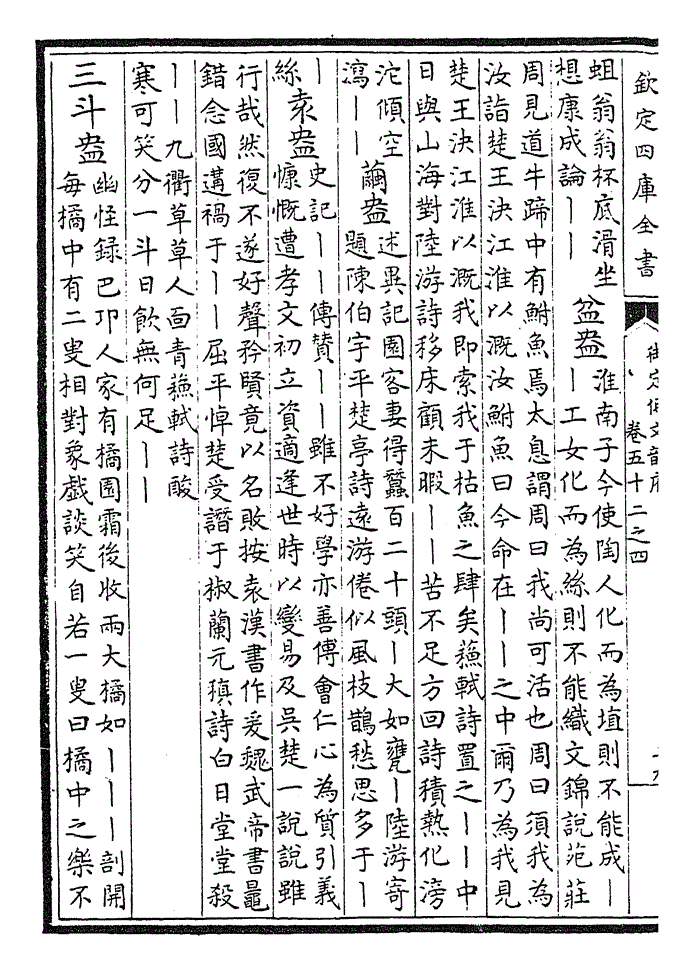 欽定四庫全書
御定佩文韻府
卷五十二之四
蛆翁翁杯底滑坐
想康成論丨丨
盆盎
淮南子今使陶人化而為埴則不能成丨
丨工女化而為絲則不能織文錦說苑莊
周見道牛蹄中有鮒魚焉太息謂周曰我尚可活也周曰須我為
汝詣楚王決江淮以溉汝鮒魚曰今命在丨丨之中爾乃為我見
楚王決江淮以溉我即索我于枯魚之肆矣蘓軾詩置之丨丨中
日與山海對陸游詩移床顧未暇丨丨苦不足方回詩積熱化滂
沱傾空
瀉丨丨
繭盎
述異記園客妻得蠶百二十頭丨大如甕丨陸游寄
題陳伯宇平楚亭詩遠游倦似風枝鵲愁思多于丨
丨
絲
袁盎
史記丨丨傳贊丨丨雖不好學亦善傳會仁心為質引義
慷慨遭孝文初立資適逢世時以變易及吳楚一說說雖
行哉然復不遂好聲矜賢竟以名敗按袁漢書作爰魏武帝書鼂
錯念國遘禍于丨丨屈平悼楚受譖于椒蘭元稹詩白日堂堂殺
丨丨九衢草草人面青蘓軾詩酸
寒可笑分一斗日飲無何足丨丨
三斗盎
幽怪錄巴卭人家有橘園霜後收兩大橘如丨丨丨剖開
每橘中有二叟相對象戲談笑自若一叟曰橘中之樂不